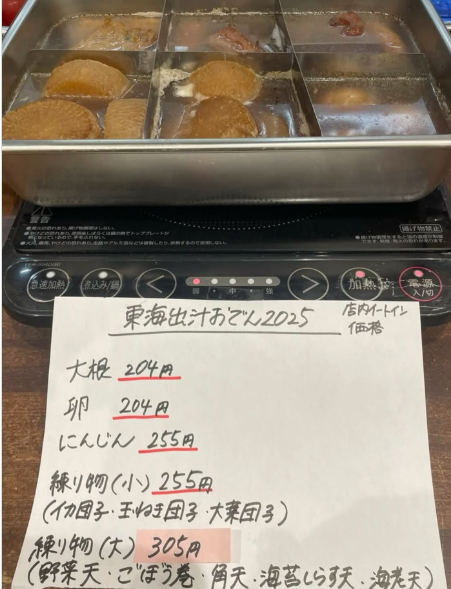 揚げ物禁止
急速加熱
煮込み/鍋
弱
中
強
加熱
電源
入/切
東海出汁おでん2025
店内イートイン
価格
大根 204円
卵 204円
にんじん 255円
練り物(小) 255円
(イカ団子・玉ねぎ団子・大葉団子)
練り物(大) 305円
(野菜天・ごぼう巻・角天・海苔しらす天・海老天)